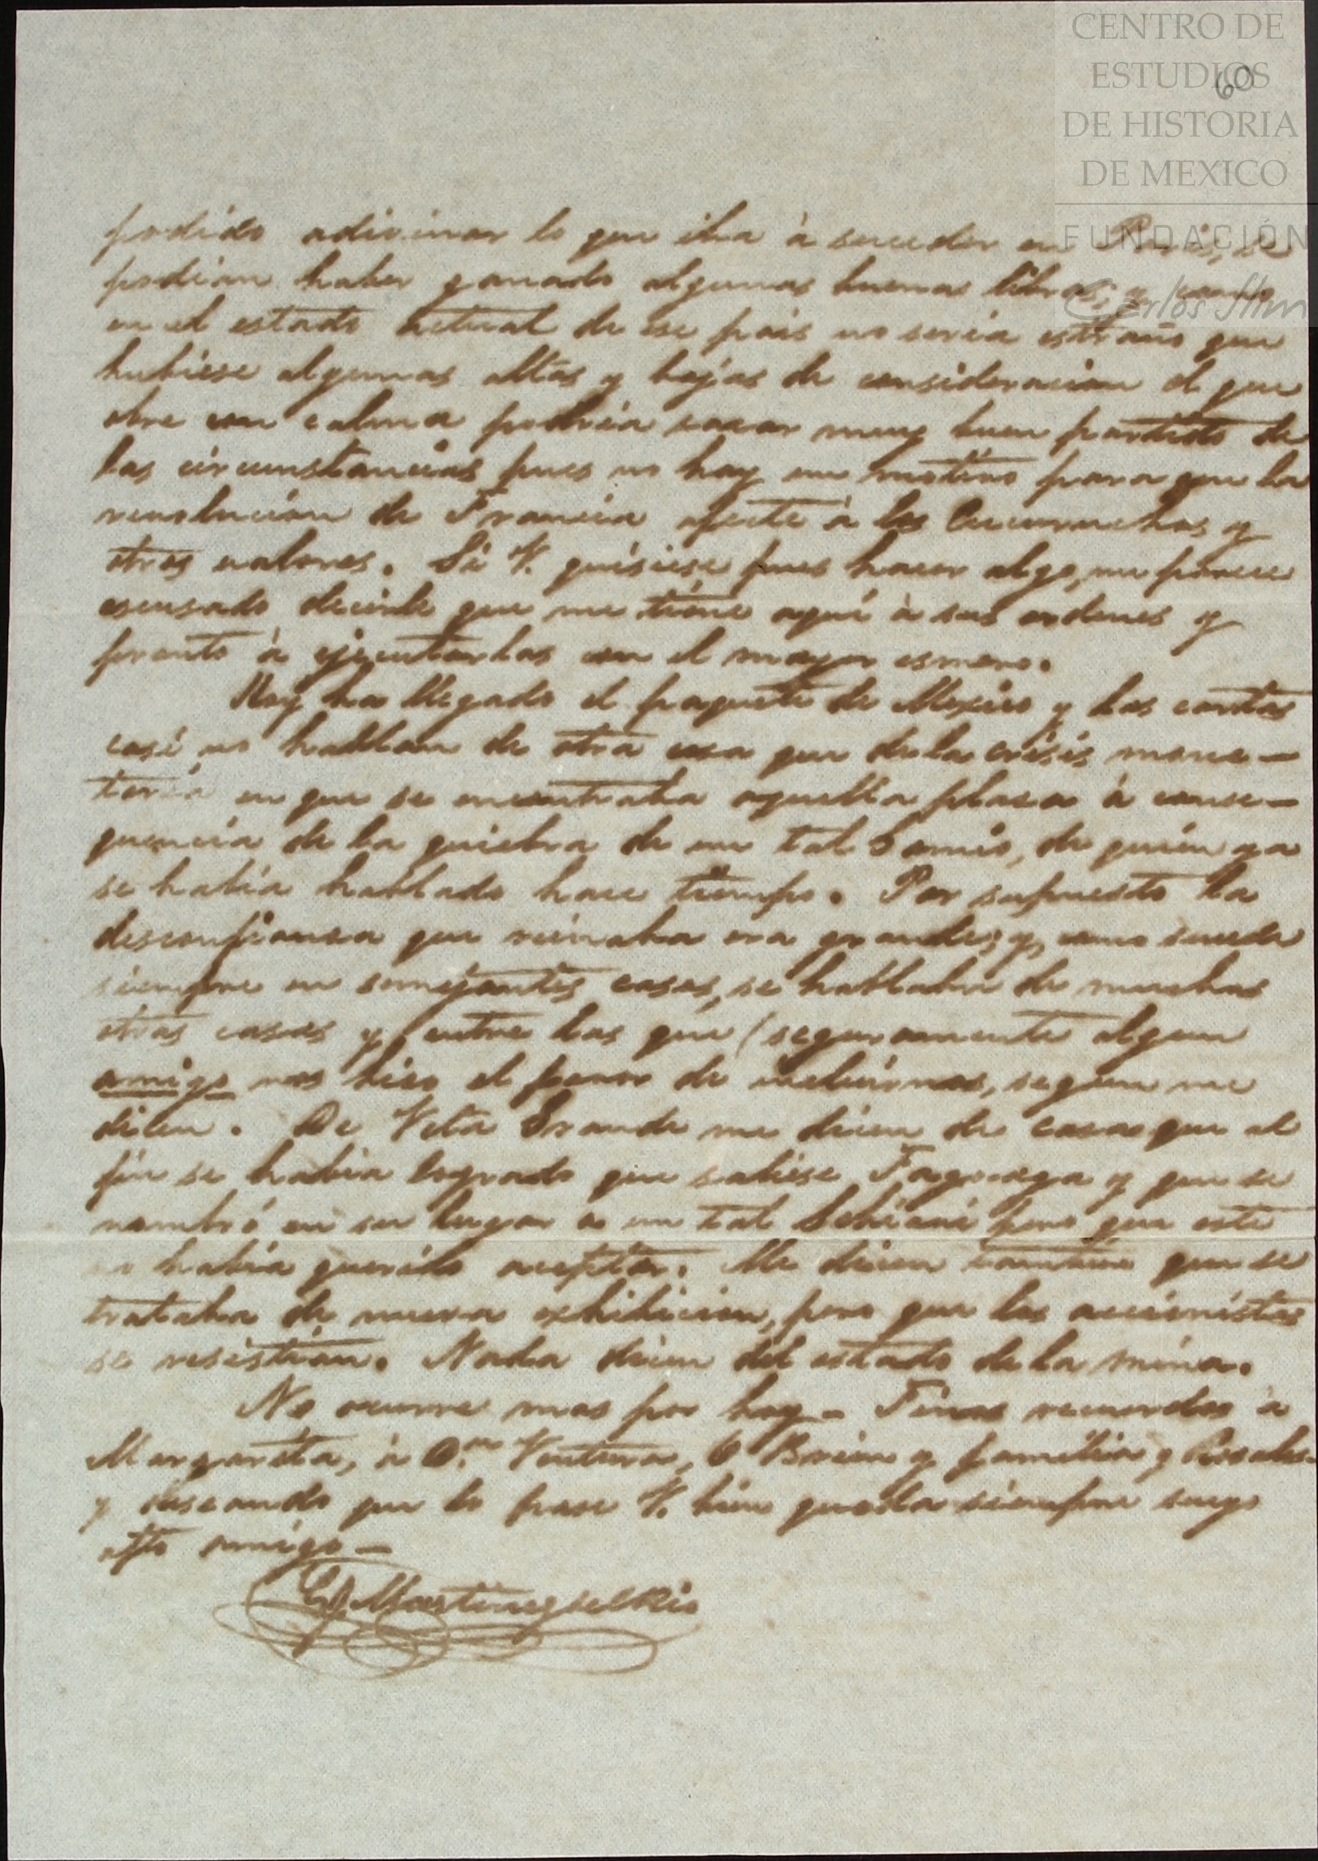 CENTRO DE
ESTUDIOS
DE HISTORIA
DE MEXICO
FUNDACIÓN
Carlos Slim
60
podido adivinar lo que iba à suceder en Paris, se
podian haber ganado algunas buenas libras; y como
en el estado actual de ese pais no seria estraño que
hubiese algunas altas y bajas de consideracion el que
obre con calma podria sacar muy buen partido de
las circunstancias pues no hay un motivo para que la
revolucion de Francia afecte à los Cucuruchos y
otros valores. Si V. quisiese pues hacer algo, me parece
escusado decirle que me tiene aqui à sus ordenes y
pronto à ejecutarlas con el mayor esmero.
Hoy ha llegado el paquete de Mexico y las cartas
casi no hablan de otra cosa que de la crisis mone-
taria en que se encontraba aquella plasa à conse-
quencia de la quiebra de un tal de quien ya
se habia hablado hace tiempo. Por supuesto la
desconfianza que reinaba era grande, y, como sucede
siempre en semejantes casos, se hablaba de muchas
otras casas y entre las que (seguramente algun
amigo nos hizo el favor de incluirnos, segun me
dicen. De Veta Grande me dicen de casa que al
fin se habia logrado que saliese Fagoaga y que se
nombró en su lugar a un tal pero que este
no habia querido aceptar. Me dicen tambien que se
trataba de nueva exhibicion, pero que los accionistas
se resistian. Nada dicen del estado de la mina.
No ocurre mas por hoy - Finos recuerdos à
Margarita, à Dn. Ventura, O'Brien y familia y Rosales
y deseando que lo pase V. bien queda siempre suyo
afto amigo -
G. Martinez del Rio